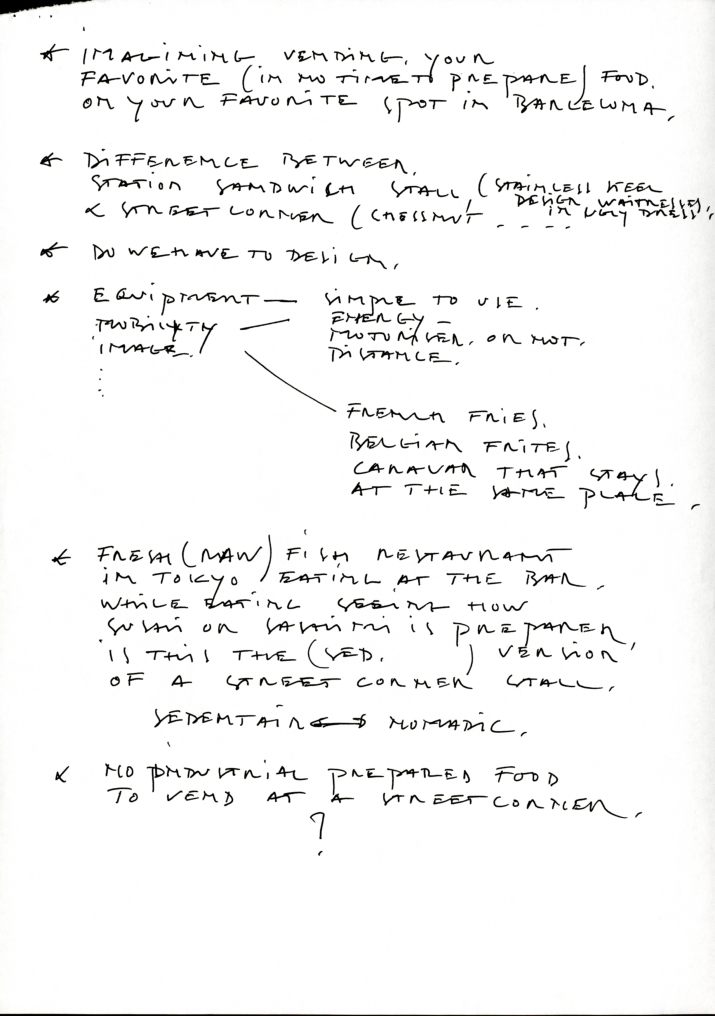 * IMAGINING VENDING, YOUR
FAVORITE (IN NO TIME TO PREPARE) FOOD.
ON YOUR FAVORITE SPOT IN BARCELONA,
* DIFFERENCE BETWEEN,
STATION SANDWICH STALL, (STAINLESS STEEL
DESIGN, WAITRESSES),
& STREETCORNER (CHESSNUT - - - - IN UGLY DRESS),
* DO WE HAVE TO DESIGN,
* EQUIPMENT — SIMPLE TO USE.
MOBILITY — ENERGY —
IMAGE. MOTORISED, OR NOT,
DISTANCE.
FRENCH FRIES,
BELGIAN FRITES.
CARAVAN THAT STAYS.
AT THE SAME PLACE,
* FRESH (RAW) FISH RESTAURANT
IN TOKYO, EATING AT THE BAR,
WHILE EATING SEEING HOW
SUSHI OR SASHIMI IS PREPARED,
IS THIS THE (SED. ) VERSION
OF A STREET CORNER STALL,
SEDENTAIR ↔ NOMADIC,
* NO INDUSTRIAL PREPARED FOOD
TO VEND AT A STREETCORNER,
?